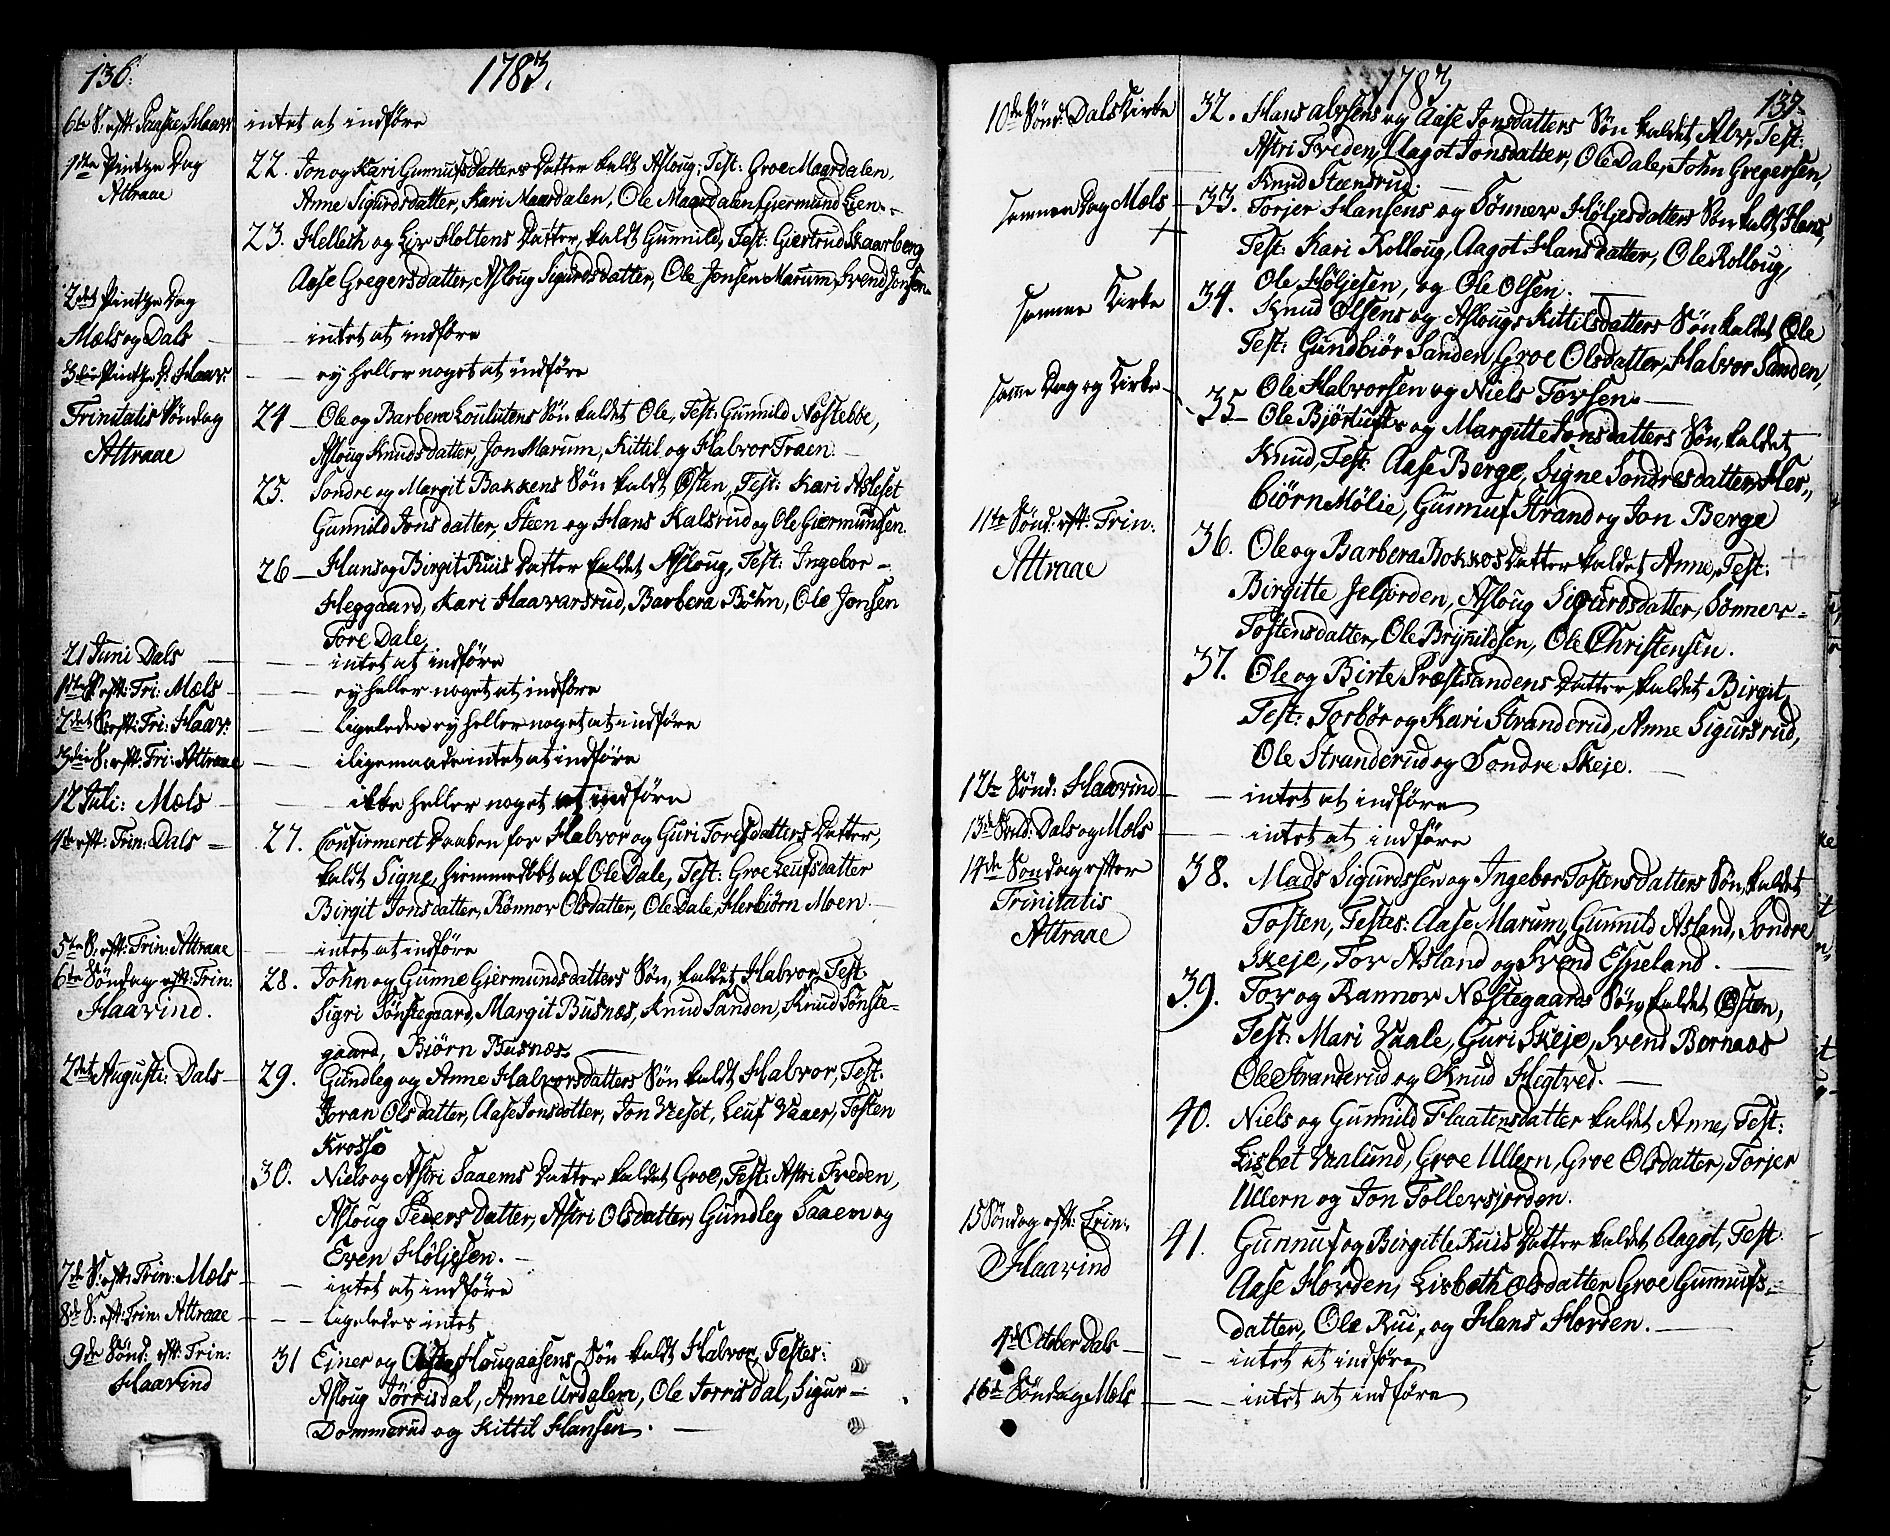 136.
1783.
6te S: eft: Paaske, Haav: intet at indføre
1ste Pintze Dag
Attraae
22. Jon og Kari Gunnufsdatters Datter kaldt Asloug, Test: Groe Maardalen,
Anne Sigurdsdatter, Kari Maardalen, Ole Maardalen, Giermund Lien.
23. Hellech og Liv Holtens Datter, kaldt Gunnild, Test: Giertrud Skaarberg
Aase Gregersdatter, Asloug Sigurdsdatter, Ole Jonsen Marum, Svend Jonsen.
2det Pintze Dag
Mæls og Dals — intet at indføre
3die Pintze D: Haav: — ey heller noget at indføre
Trinitatis Søndag
Attraae
24 Ole og Barbera Loulutens Søn kaldet Ole, Test: Gunnild Næstebbe,
Asloug Knudsdatter, Jon Marum, Kittil og Halvor Traen.
25. Sondre og Margit Bakkens Søn kaldt Østen, Test: Kari Asleset
Gunnild Jonsdatter, Steen og Hans Kalsrud og Ole Giermundsen.
26 — Hans og Birgit Ruis Datter kaldet Asloug, Test: Ingebor
Heggaard, Kari Haavarsrud, Barbera Bøhn, Ole Jonsen
Tore Dale,
21 Juni Dals — intet at indføre
1ste S. eft: Tri: Mæls — ey heller noget at indføre
2det S. eft: Tri: Haav: — ligeledes ey heller noget at indføre
3die S: eft: Tri: Attraae — iligemaade intet at indføre
12 Juli: Mæls — ikke heller noget at indføre
4te eft: Trin: Dals —
27. Confirmeret Daaben for Halvor og Guri Toresdatters Datter,
kaldt Signe, hiemmedøbt af Ole Dale, Test: Groe Leufsdatter
Birgit Jonsdatter, Rønnov Olsdatter, Ole Dale, Herbiørn Moen.
5te S: eft: Trin: Attraae — intet at indføre
6te Søndag eft: Trin:
Haavind.
28. John og Gunne Giermundsdatters Søn, kaldet Halvor, Test
Sigri Tønstegaard, Margit Busnæs, Knud Sanden, Knud Tønste-
gaard, Biørn Busnæs.
2det Augusti: Dals —
29. Gundleg og Anne Halvorsdatters Søn kaldt Halvor, Test:
Joran Olsdatter, Aase Jonsdatter, Jon Veset, Leuf Vaaer, Tosten
Krosso
30. Niels og Astri Saaems Datter kaldet Groe, Test: Astri Freden,
Asloug Pedersdatter, Astri Olsdatter, Gundleg Saaem og
Even Høljesen.
7de S: eft: Trin: Mæls — intet at indføre
8de S: eft: Trin: Attraae — ligeledes intet
9de Sønd: eft: Trin:
Haavind
31 Ejner og Haugaasens Søn kaldt Halvor, Testes:
Asloug Jørrisdal, Anne Urdalen, Ole Jorrisdal, Sigur
Dommerud og Kittil Hansen.
1783
137.
10de Sønd: Dals Kirke
32. Hans Alvsens og Aase Jonsdatters Søn kaldet Alv, Test:
Astri Freden, Aagot Jonsdatter, Ole Dale, John Gregersen,
Knud Stænsrud.
samme Dag Mæls —
33. Torjer Hansens og Sønnev Høljesdatters Søn kaldt Hans,
Test: Kari Kolloug, Aagot Hansdatter, Ole Kolloug,
Ole Høljesen, og Ole Olsen.
samme Kirke
34. Knud Olsens og Aslougs Kittilsdatters Søn kaldet Ole
Test: Gundbiør Sanden, Groe Olsdatter, Halvor Sanden,
Ole Halvorsen og Niels Torsen.
samme Dag og Kirke
35 Ole Bjørtufts og Margitte Jonsdatters Søn, kaldet
Knud, Test: Aase Berge, Signe Sondresdatter, Her-
biørn Mølie, Gunnuf Strand og Jon Berge
11te Sønd: eft: Trin:
Attraae
36. Ole og Barbera Bokkos Datter kaldet Anne, Test:
Birgitte Jeljorden, Asloug Sigurdsdatter, Sønnev
Tostensdatter, Ole Brynildsen, Ole Christensen.
37. Ole og Birte Præstsandens Datter, kaldet Birgit,
Test: Torbør og Kari Stranderud, Anne Sigursrud,
Ole Stranderud og Sondre Skeje.
12te Sønd: Haavind — intet at indføre
13de Sønd: Dals og Mæls — intet at indføre
14de Søndag efter
Trinitatis
Attraae
38. Mads Sigurdssen og Ingebor Tostensdatters Søn, kaldet
Tosten, Testes: Aase Marum, Gunnild Asland, Sondre
Skeje, Tov Asland og Svend Espeland.
39. Tov og Rannov Næstegaards Søn, kaldet Østen,
Test: Mari Vaale, Guri Skeje, Svend Bernaas
Ole Stranderud og Knud Hegtved.
40. Niels og Gunnild Flaatensdatter kaldet Anne, Test:
Lisbet Vaalund, Groe Ullern, Groe Olsdatter, Torjer
Ullern og Jon Tollevsjorden.
15 Søndag eft: Trin:
Haavind
41. Gunnuf og Birgitte Ruis Datter kaldet Aagot, Test
Aase Horden, Lisbeth Olsdatter, Groe Gunnufs-
datter, Ole Rui, og Hans Horden.
4de October Dals — intet at indføre
16te Søndag Mæls — intet at indføre